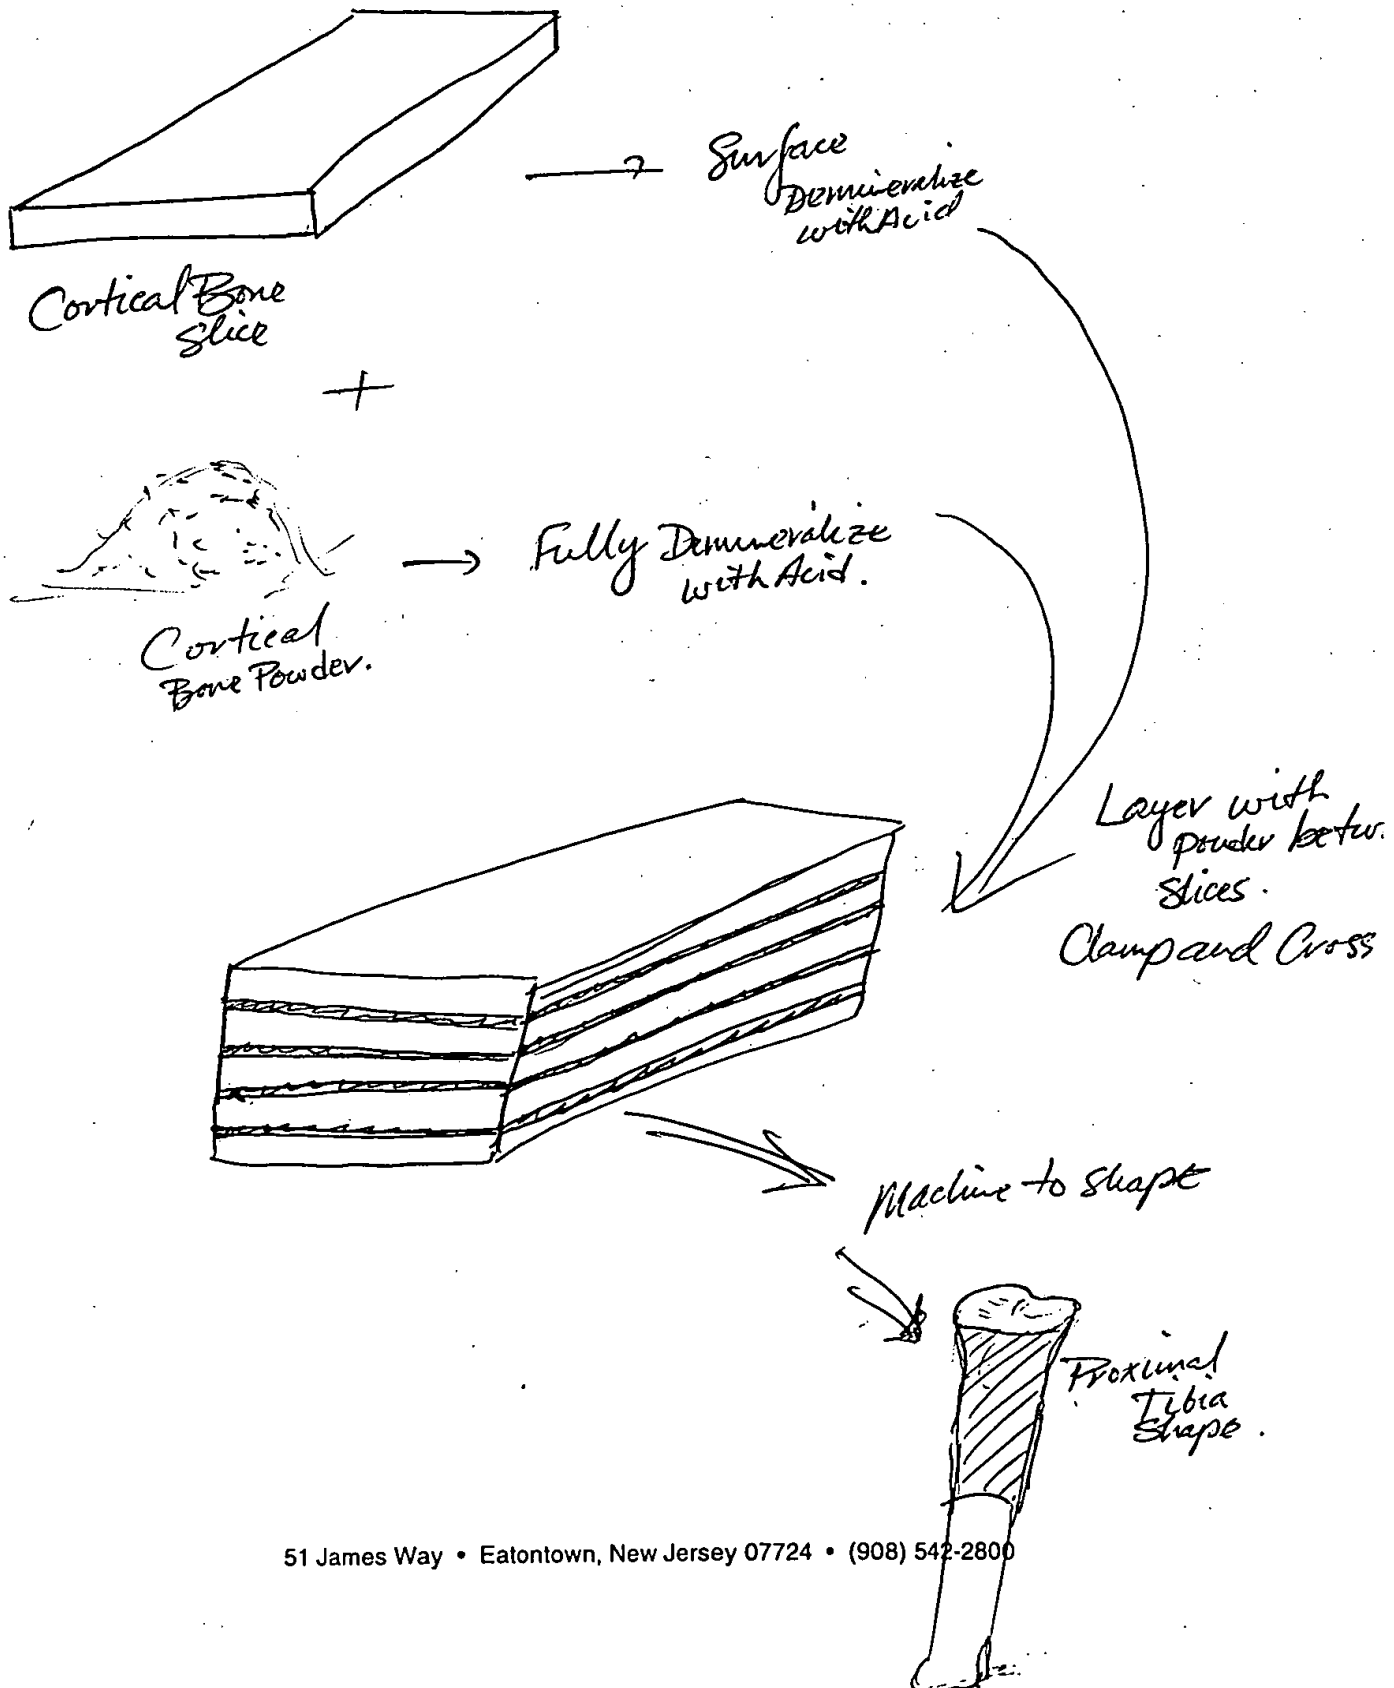 Surface
Demineralize
with Acid
Cortical Bone
Slice
+
Fully Demineralize
with Acid.
Cortical
Bone Powder.
Layer with
powder betw.
Slices.
Clamp and Cross
Machine to Shape
Proximal
Tibia
Shape.
51 James Way • Eatontown, New Jersey 07724 • (908) 542-2800